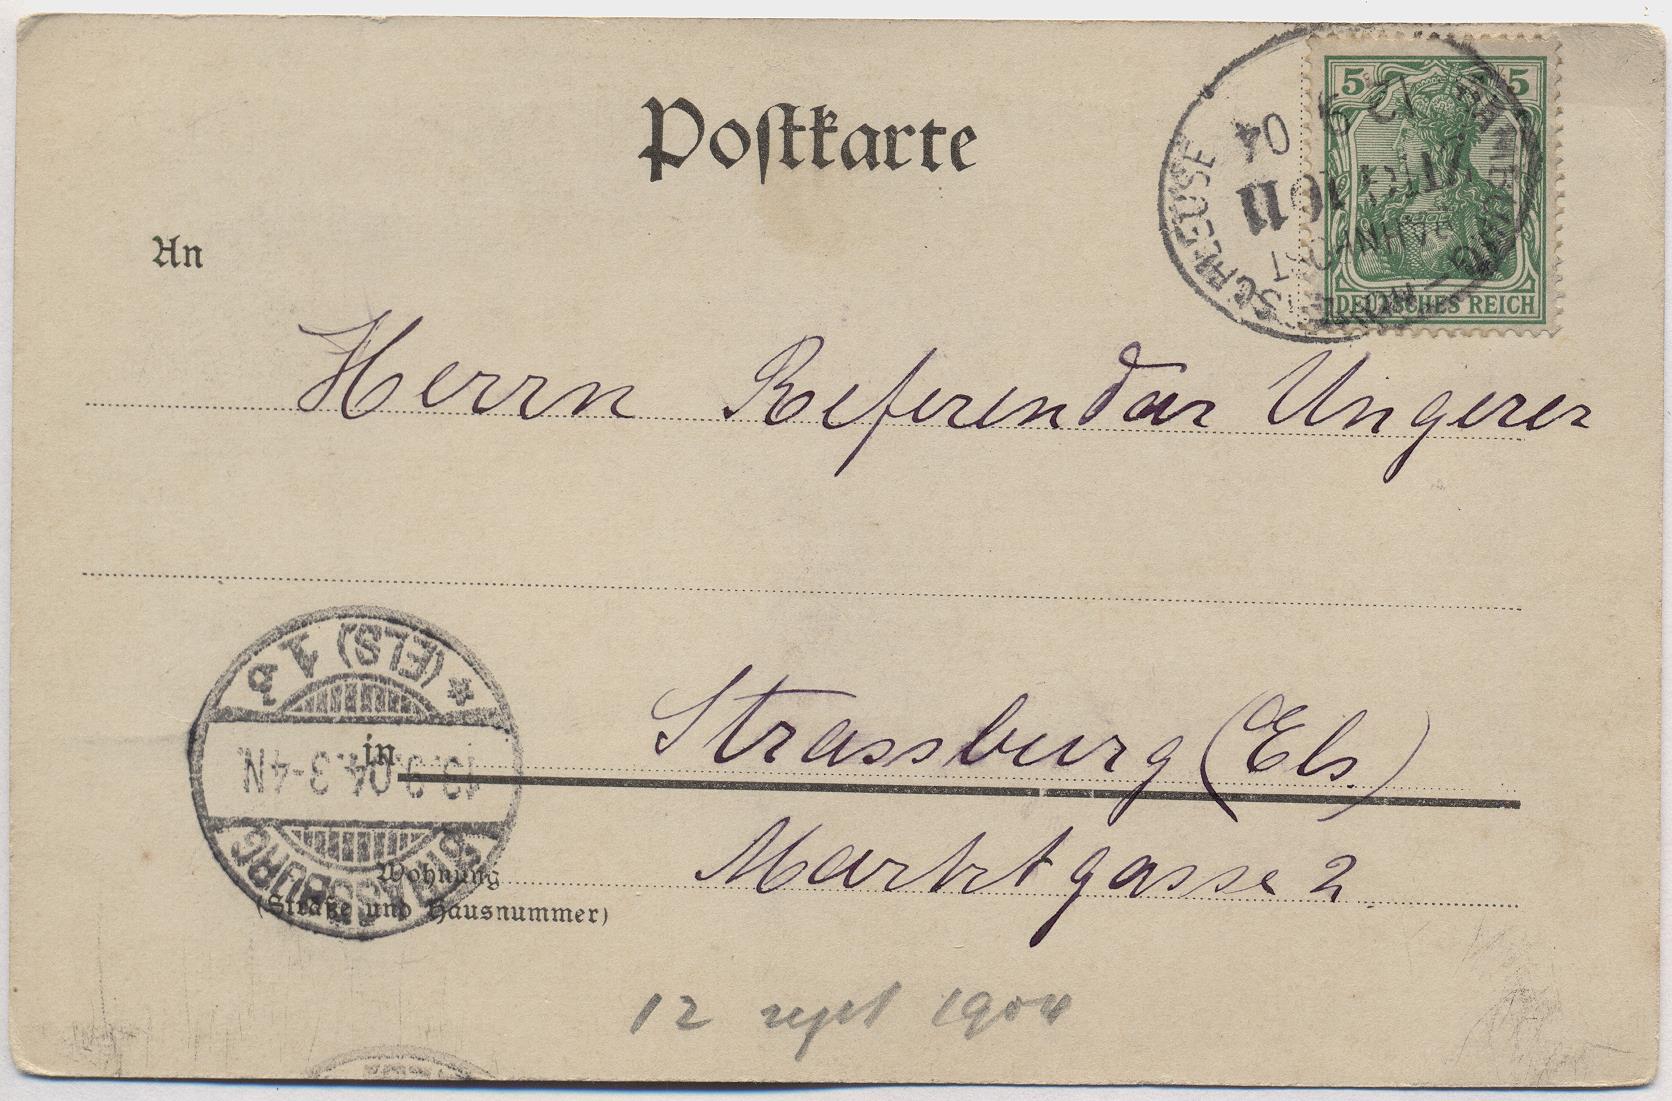 Postkarte
5 5
DEUTSCHES REICH
12 9 04
BAHNPOST
An
Herrn Referendar Ungerer
Strassburg (Els)
in
Marktgasse 2
Wohnung
(Straße und Hausnummer)
STRASSBURG
13.9.04.3-4N
* (ELS) 1
12 sept 1904